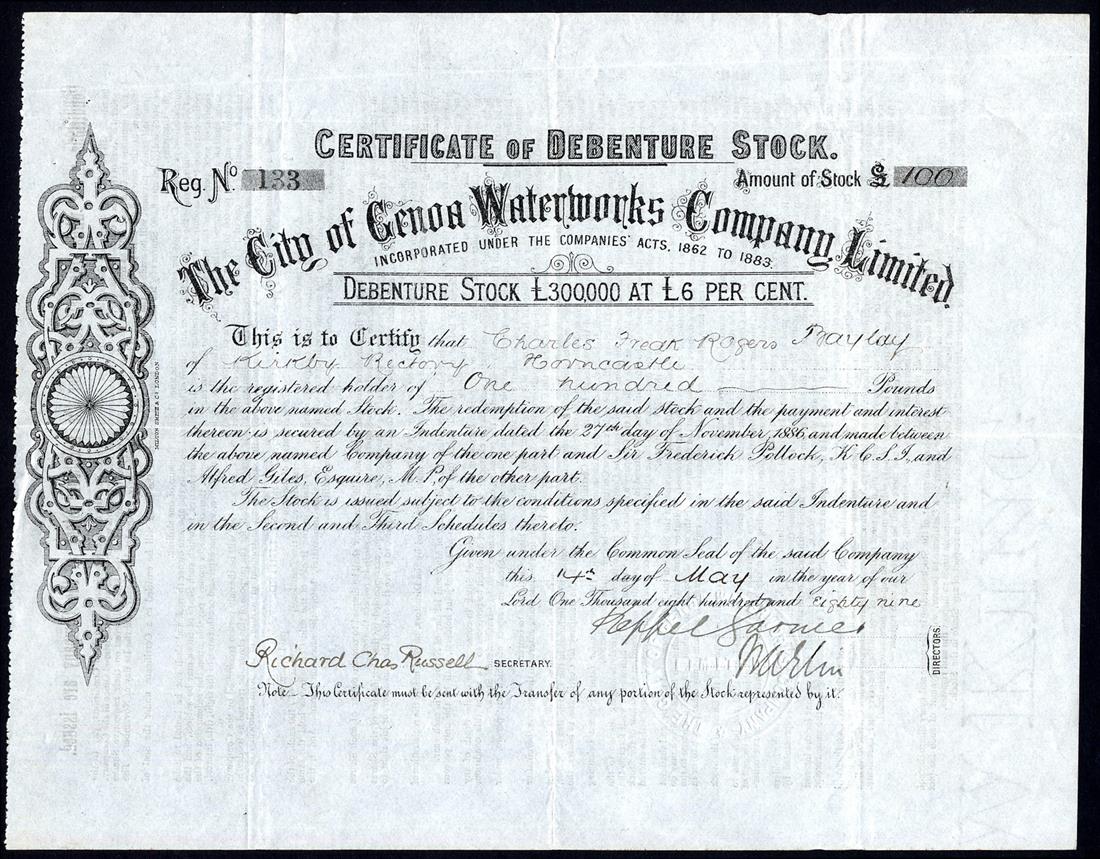 CERTIFICATE OF DEBENTURE STOCK.
Reg. No 133
Amount of Stock £ 100
The City of Genoa Waterworks Company, Limited.
INCORPORATED UNDER THE COMPANIES' ACTS, 1862 TO 1883.
DEBENTURE STOCK £300,000 AT £6 PER CENT.
This is to Certify that Charles Freak Rogers Baylay
of Kirkby Rectory Horncastle
is the registered holder of One hundred Pounds
in the above named Stock. The redemption of the said stock and the payment and interest
thereon is secured by an Indenture dated the 27th day of November, 1886, and made between
the above named Company of the one part and Sir Frederick Pollock, K.C.S.I., and
Alfred Giles, Esquire, M.P., of the other part.
The Stock is issued subject to the conditions specified in the said Indenture and
in the Second and Third Schedules thereto.
Given under the Common Seal of the said Company
this 14th day of May in the year of our
Lord One Thousand eight hundred and Eighty nine
Richard Chas Russell SECRETARY.
DIRECTORS.
Note. This Certificate must be sent with the Transfer of any portion of the Stock represented by it.